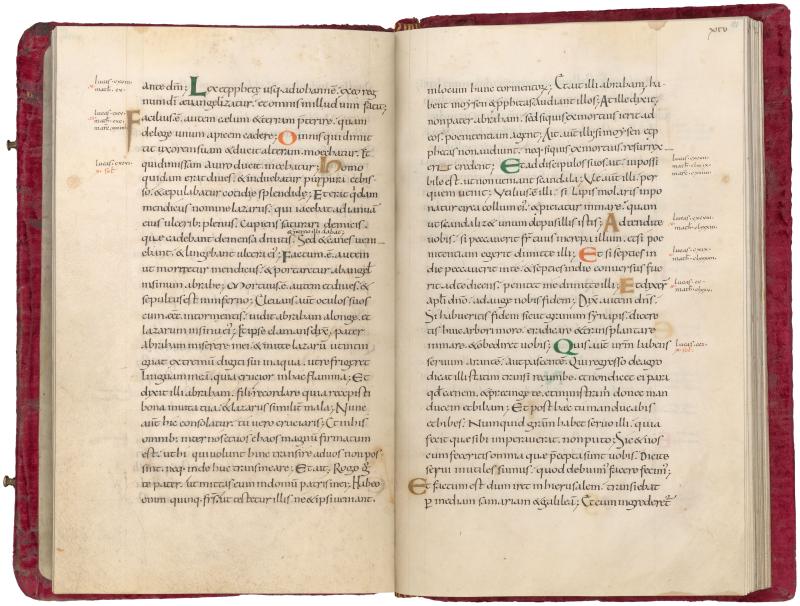 ante dm̄; Lex & pphetę usq; ad iohannē. ex eo reg
num dī euangelizatur. et omnis in illud uim facit;
Facilius ē. autem cælum & terram preterire. quam
de lege unum apicem cadere; Omnis qui dimit
tit uxorem suam & ducit alteram. moechatur. Et
qui dimissam a uiro ducit. mechatur; homo
quidam erat diues. & induebatur purpura & bis
so. & epulabatur cotidie splendide; Et erat qdam
mendicus nomine lazarus. qui iacebat ad ianuā
eius ulceribꝰ plenus. Cupiens saturari de micis.
& nemo illi dabat;
quæ cadebant de mensa diuitis. Sed & canes ueni
ebant. & lingebant ulcera eiꝰ; Factum ē. autem
ut moreretur mendicus & portaretur ab angel̄
in sinum abrahę; Mortuus ē. autem et diues. &
sepultus est in inferno; Eleuans aut̄ oculos suos
cum eēt in tormentis. uidit abraham a longe. et
lazarum in sinu eiꝰ; & ipse clamans dix̄. pater
abraham miserere mei. & mitte lazarū ut intin
guat extremū digiti sui in aqua. ut refrigeret
linguam meā. quia crucior in hac flamma; Et
dixit illi abraham. fili recordare quia recepisti
bona in uita tua. & lazarus similit̄ mala; Nunc
aut̄ hic consolatur. tu uero cruciaris; Et in his
omnibꝰ inter nos et uos chaos magnū firmatum
est. ut hi qui uolunt hinc transire ad uos non pos
sint. neq; inde huc transmeare; Et ait. Rogo g̊
te pater. ut mittas eum in domū patris mei; Habeo
enim quinq; frs̄. ut testetur illis ne & ipsi ueniant.
in locum hunc tormentoꝝ; Et ait illi abraham. ha
bent moysen & pphetas. audiant illos; At ille dixit.
non pater abraham. sed si quis ex mortuis ierit ad
eos. poenitentiam agent; Ait aut̄ illi. si moysen & p
phetas non audiunt. neq; si quis ex mortuis resurrex
erit credent; Et ad discipulos suos ait. inpossi
bile est ut non ueniant scandala; Vę aut̄ illi. per
quem uenit; Vtilius ē. illi. si lapis molaris inpo
natur circa collum eiꝰ. & proiciatur in mare. quam
ut scandalizet unum de pusillis istis; Adtendite
uobis. si peccauerit fr̄ tuus increpa illum. et si poe
nitentiam egerit dimitte illi; Et si septies in
die peccauerit in te. & septies in die conuersus fue
rit ad te dicens. penitet me dimitte illi; Et dixer̄
apl̄i dn̄o. adauge nobis fidem; Dix̄ autem dn̄s.
Si habueritis fidem sicut granum synapis. dicere
tis huic arbori moro. eradicare & transplantare
in mare. & obediret uobis; Quis aut̄ ur̄m habens
seruum arantē. aut pascentē. Qui regresso de agro
dicat illi statim transi recumbe. et non dicet ei para
quod cenem. & precinge te. et ministra m̄ donec man
ducem et bibam; Et post hæc tu manducabis
et bibes. Numquid gram̄ habet seruo illi. quia
fecit quę sibi imperauerat. non puto; Sic & uos
cum feceritis omnia quæ precepta sunt uobis. Dicite
serui inutiles sumus. quod debuimꝰ facere fecimꝰ;
Et factum est dum iret in hierusalem. transiebat
p̄ mediam samariam & galileā; Et cum ingrederet̄